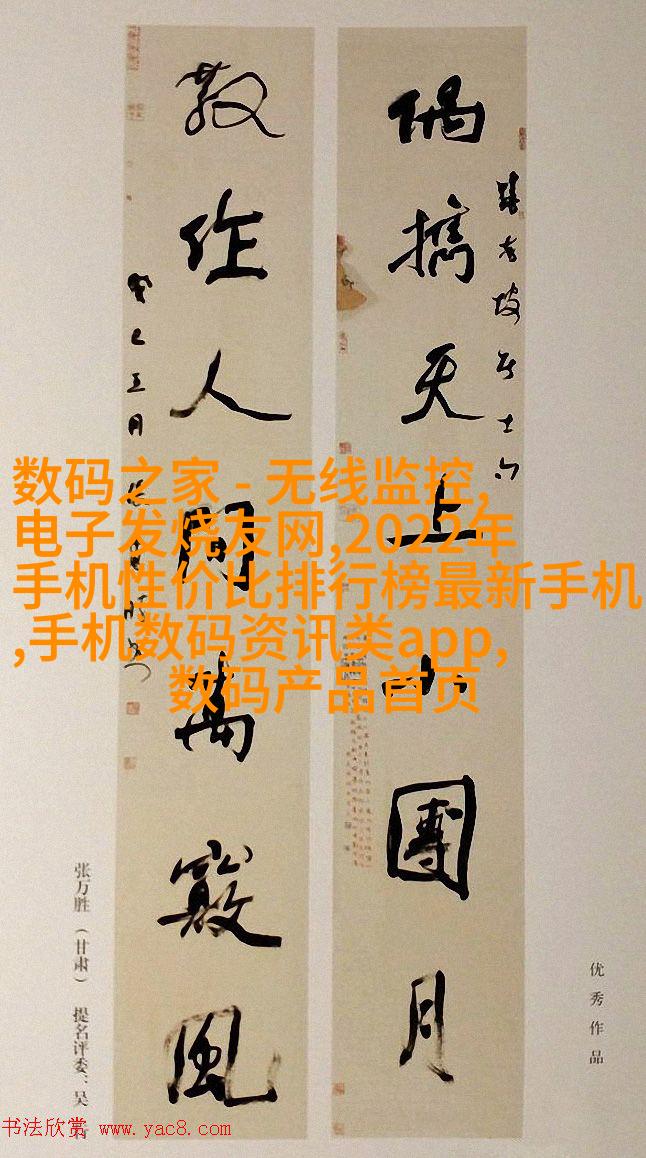 数码之家 - 无线监控,
电子发烧友网,2022年
手机性价比排行榜最新手机
,手机数码资讯类app,
数码产品首页
老坡居士句
偶携天上小團月
散作人間萬竅風
癸巳五月
优秀作品
张万胜（甘肃） 提名评委：吴
书法欣赏 www.yac8.com